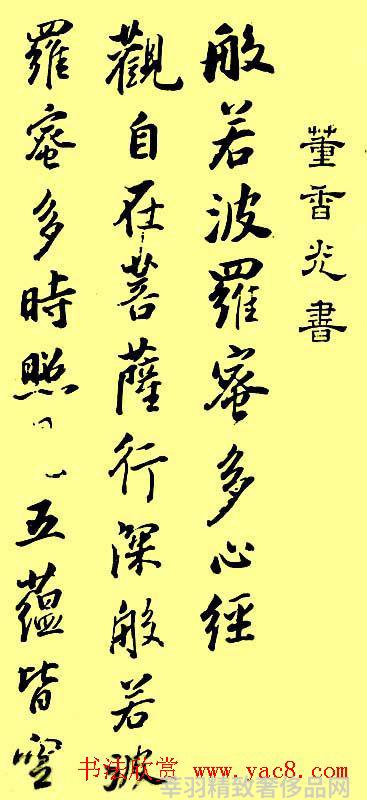 董香光書
般若波羅蜜多心經
觀自在菩薩行深般若波
羅蜜多時照五蘊皆空
书法欣赏 www.yac8.com
幸羽精致奢侈品网